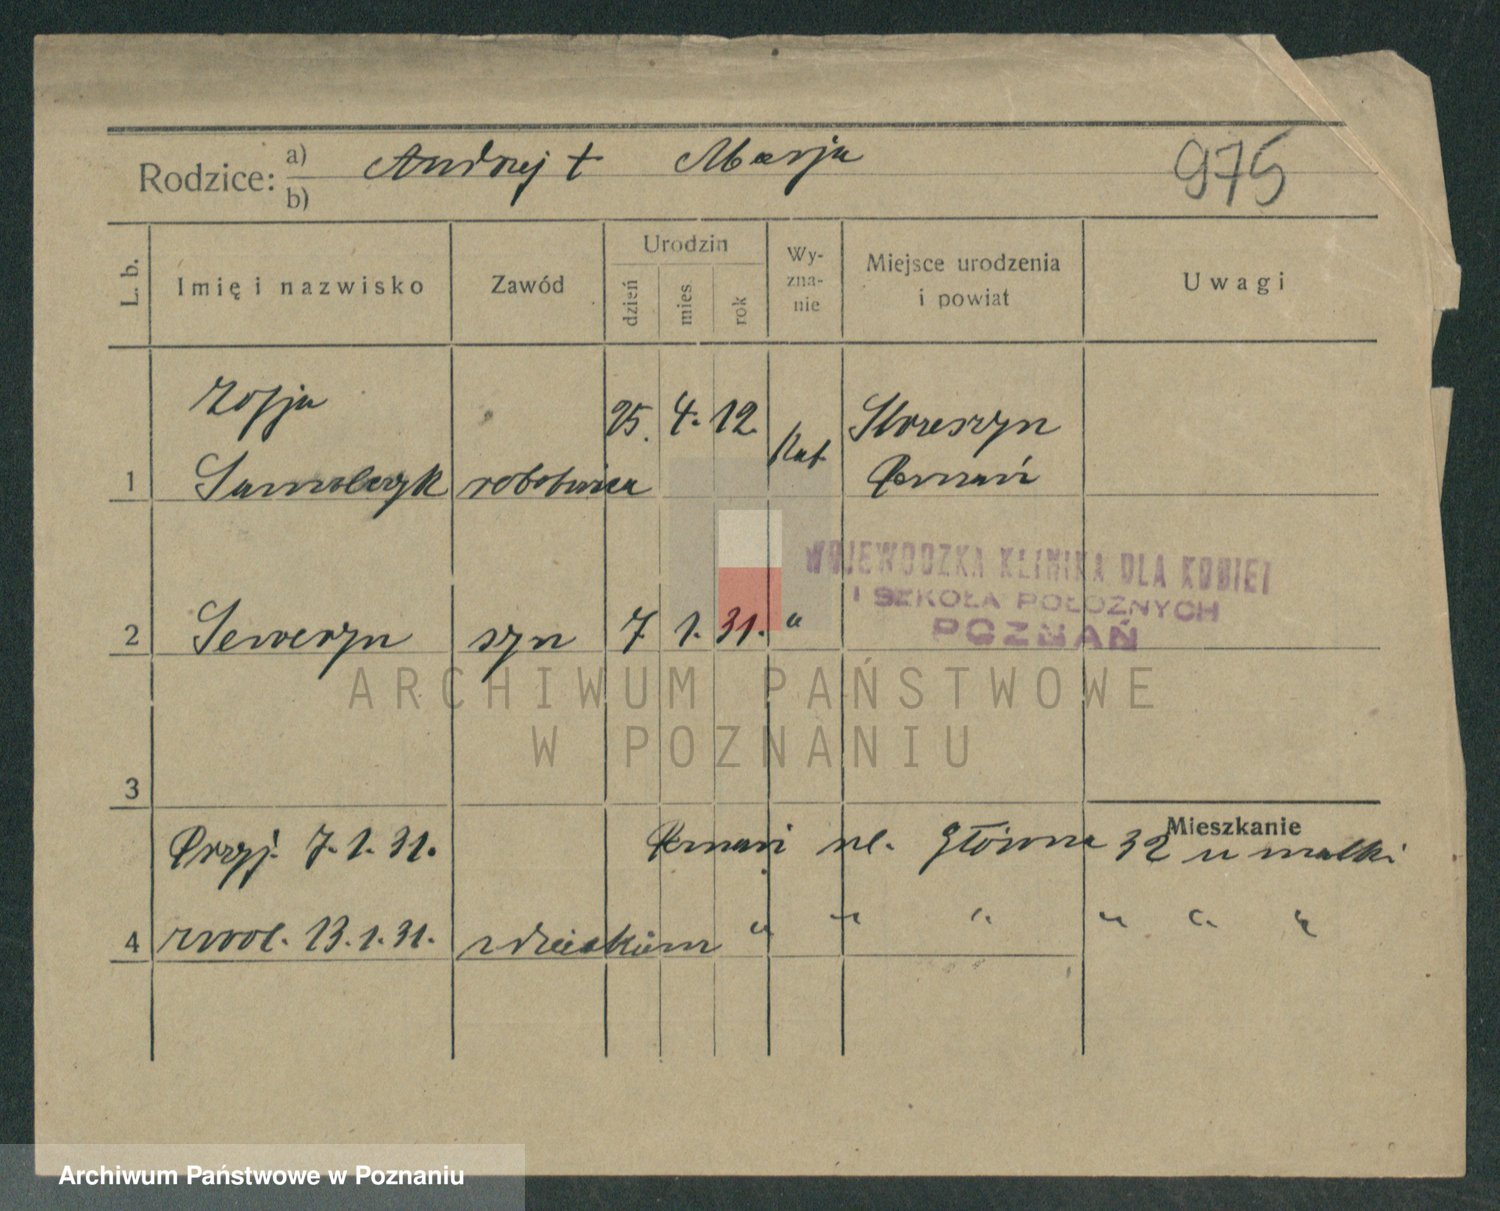 Rodzice: a) Andrzej + Marja 975
b)
L. b. Imię i nazwisko Zawód Urodzin dzień mies rok Wy-zna-nie Miejsce urodzenia i powiat Uwagi
Zofja 25. 4. 12. Kat. Strzeszyn
1 Samolczyk robotnica Poznań
WOJEWÓDZKA KLINIKA DLA KOBIET
I SZKOŁA POŁOŻNYCH
POZNAŃ
2 Seweryn syn 7. 1. 31. "
ARCHIWUM PAŃSTWOWE
W POZNANIU
3
Mieszkanie
Przyj. 7.1.31. Poznań ul. Główna 32 u matki
4 zwol. 13.1.31. z dzieckiem " " " " " "
Archiwum Państwowe w Poznaniu